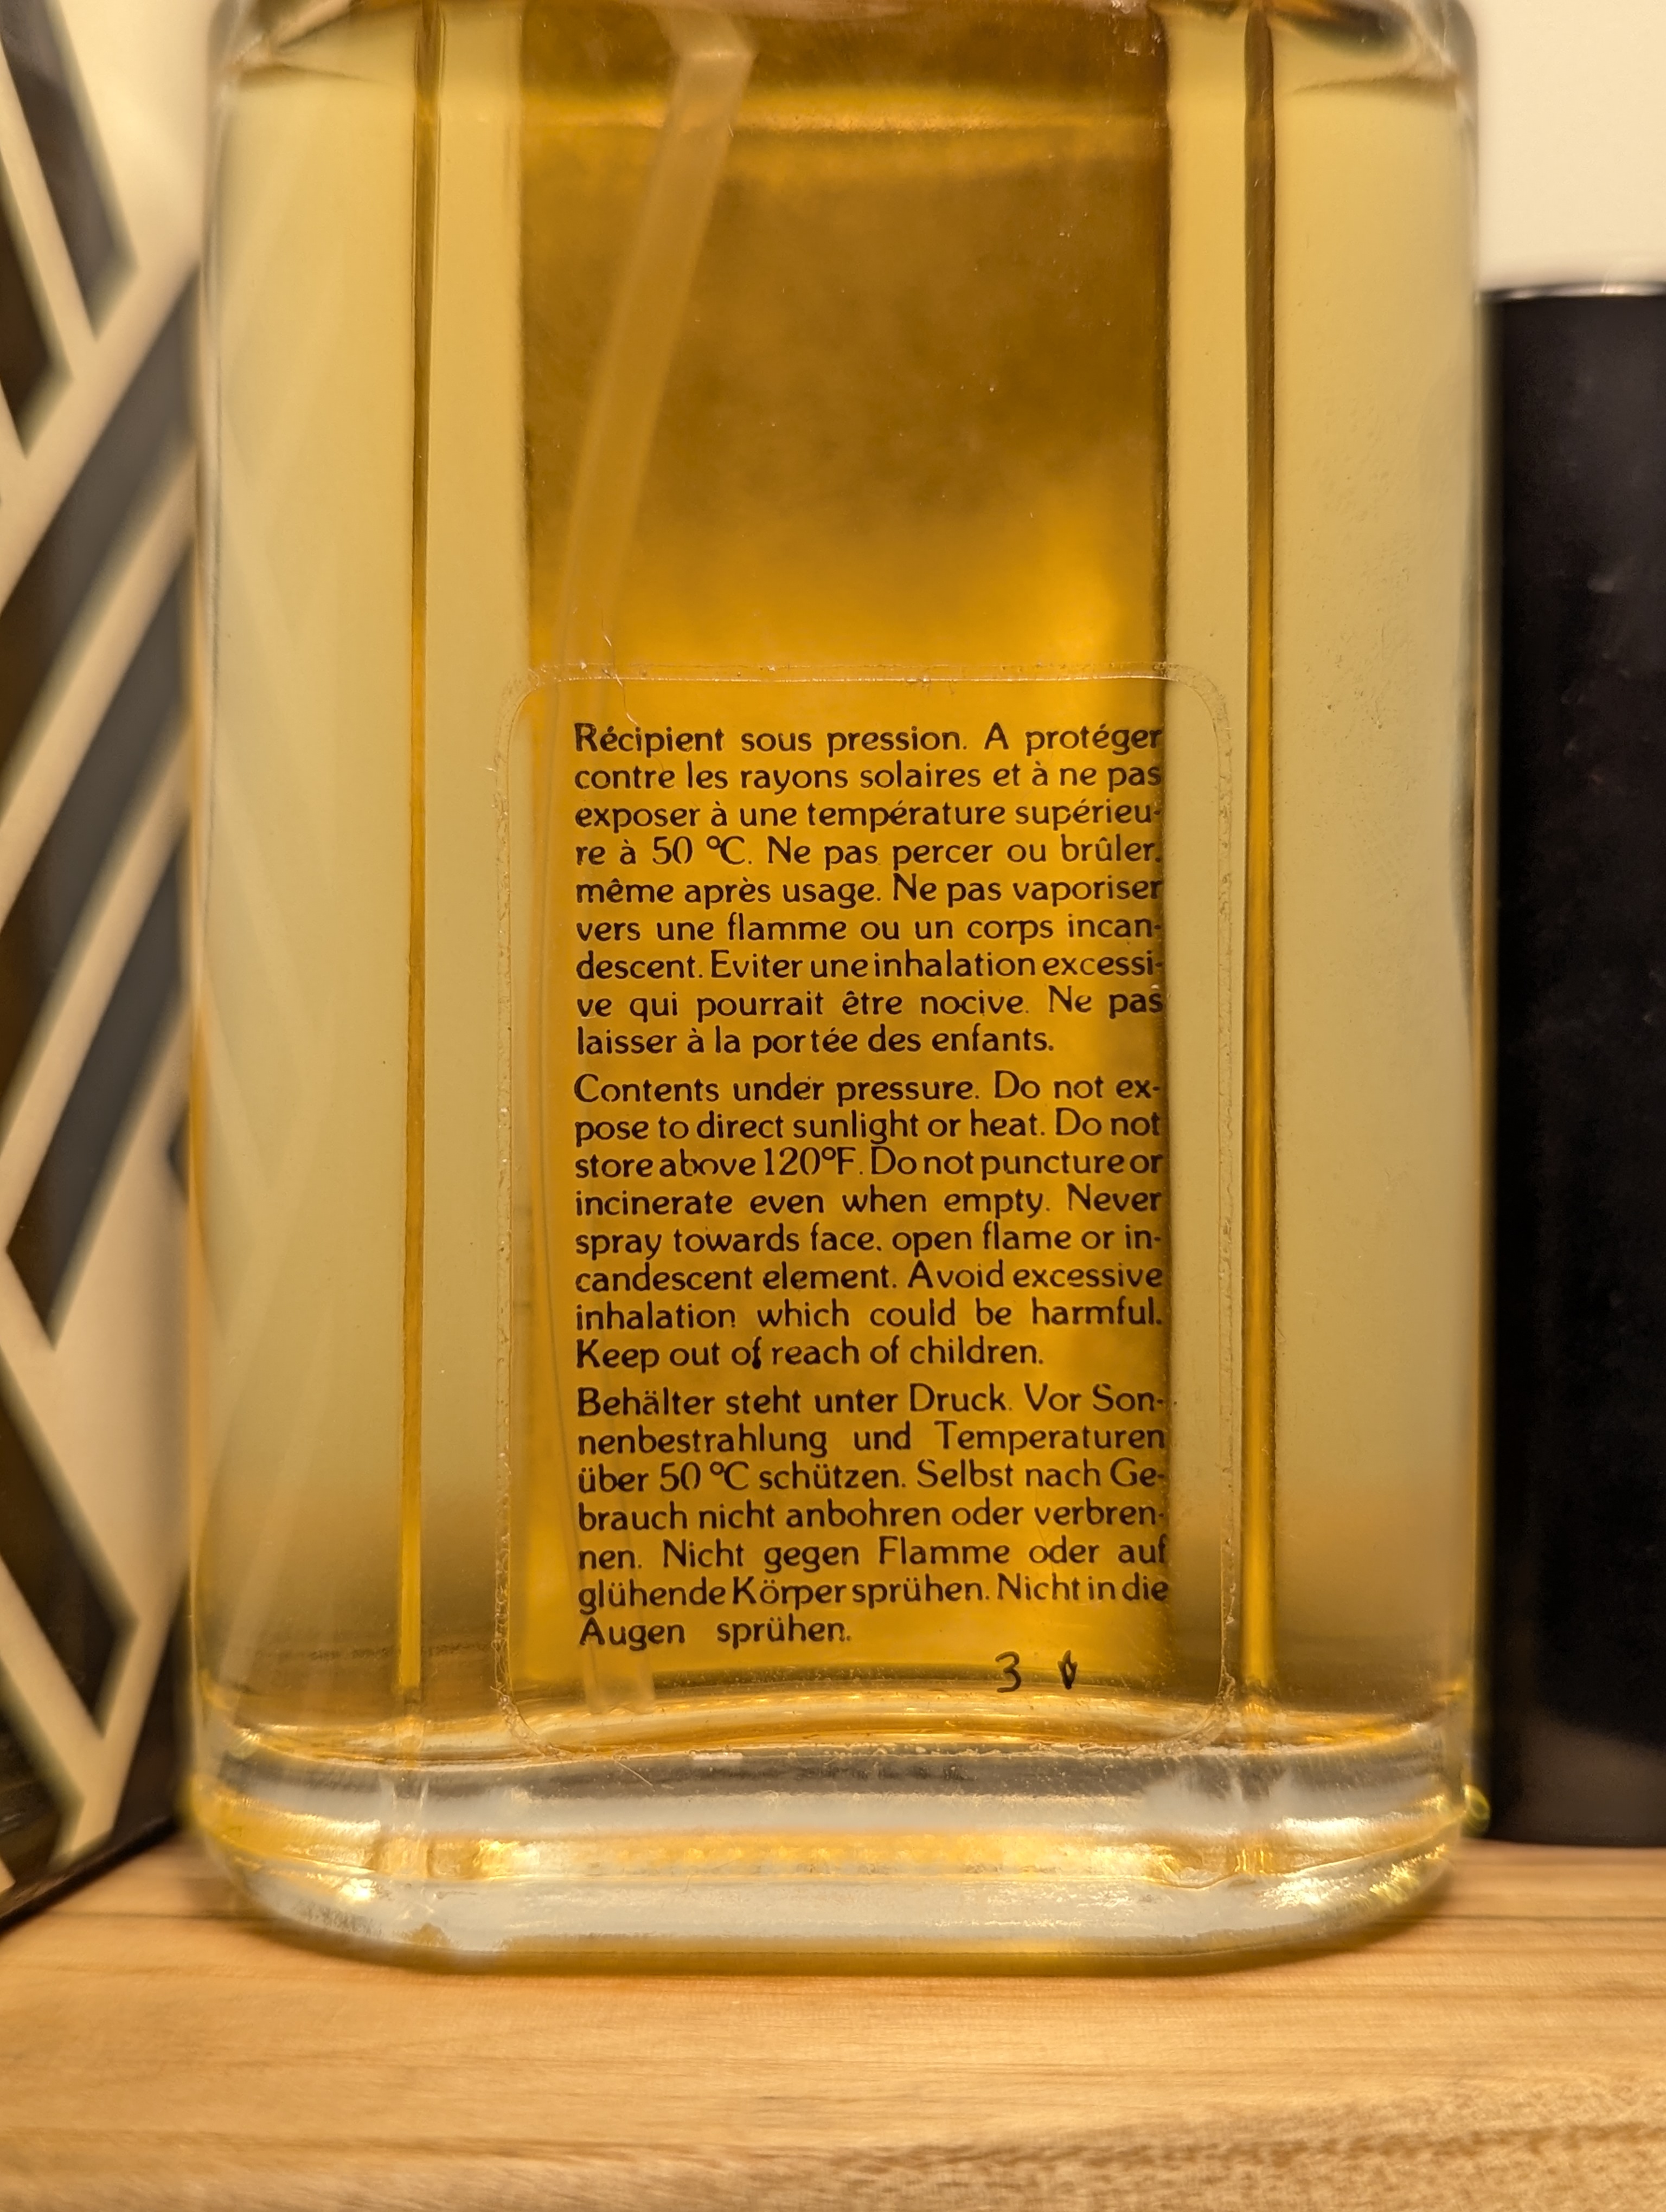 Récipient sous pression. A protéger
contre les rayons solaires et à ne pas
exposer à une température supérieu-
re à 50 °C. Ne pas percer ou brûler,
même après usage. Ne pas vaporiser
vers une flamme ou un corps incan-
descent. Eviter une inhalation excessi-
ve qui pourrait être nocive. Ne pas
laisser à la portée des enfants.
Contents under pressure. Do not ex-
pose to direct sunlight or heat. Do not
store above 120°F. Do not puncture or
incinerate even when empty. Never
spray towards face, open flame or in-
candescent element. Avoid excessive
inhalation which could be harmful.
Keep out of reach of children.
Behälter steht unter Druck. Vor Son-
nenbestrahlung und Temperaturen
über 50 °C schützen. Selbst nach Ge-
brauch nicht anbohren oder verbren-
nen. Nicht gegen Flamme oder auf
glühende Körper sprühen. Nicht in die
Augen sprühen.
3